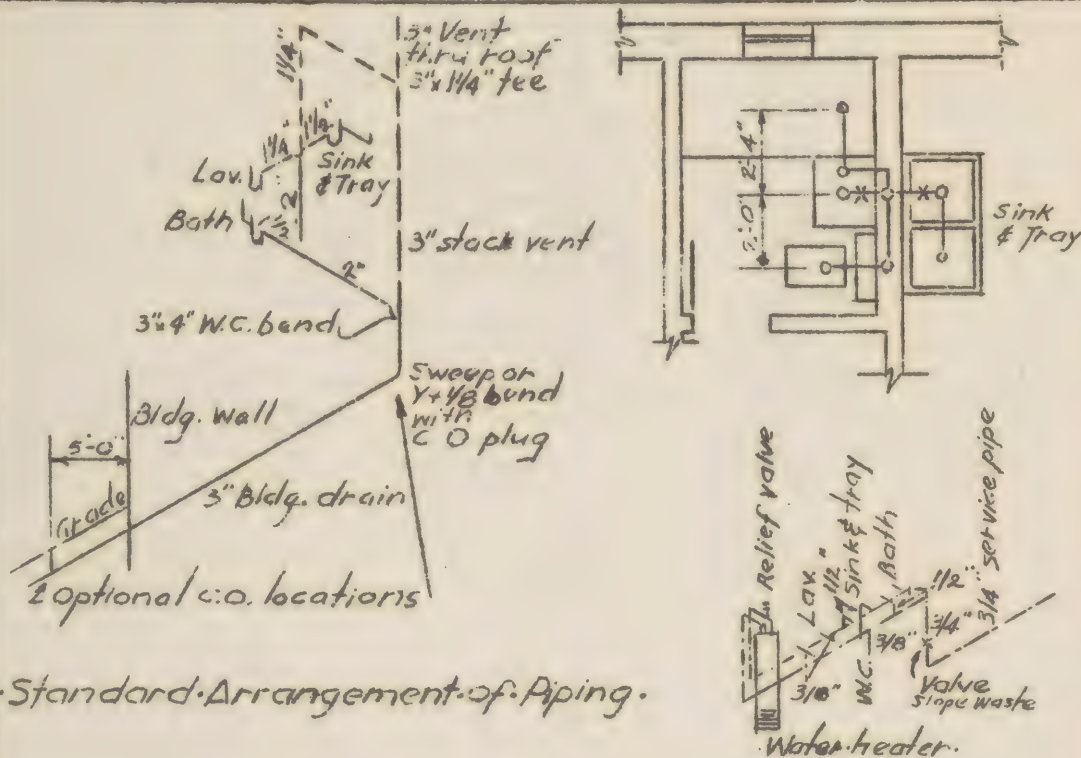 3" Vent
thru roof
3"x 1 1/4" tee
1 1/4"
1 1/4"
1 1/2"
Lav.
Sink
& Tray
Bath
2
1 1/2"
3" stack vent
2"
3"x4" W.C. bend
Sweep or
Y + 1/8 bend
with
C O plug
Bldg. Wall
5'-0"
Grade
3" Bldg. drain
2 Optional c.o. locations
·Standard·Arrangement·of·Piping·
2'-4"
2'-0"
Sink
& Tray
Relief valve
Lav.
1/2"
Sink & tray
Bath
1/2"
3/4" service pipe
3/4"
3/8"
W.C.
3/8"
Valve
Slope Waste
·Water·heater·